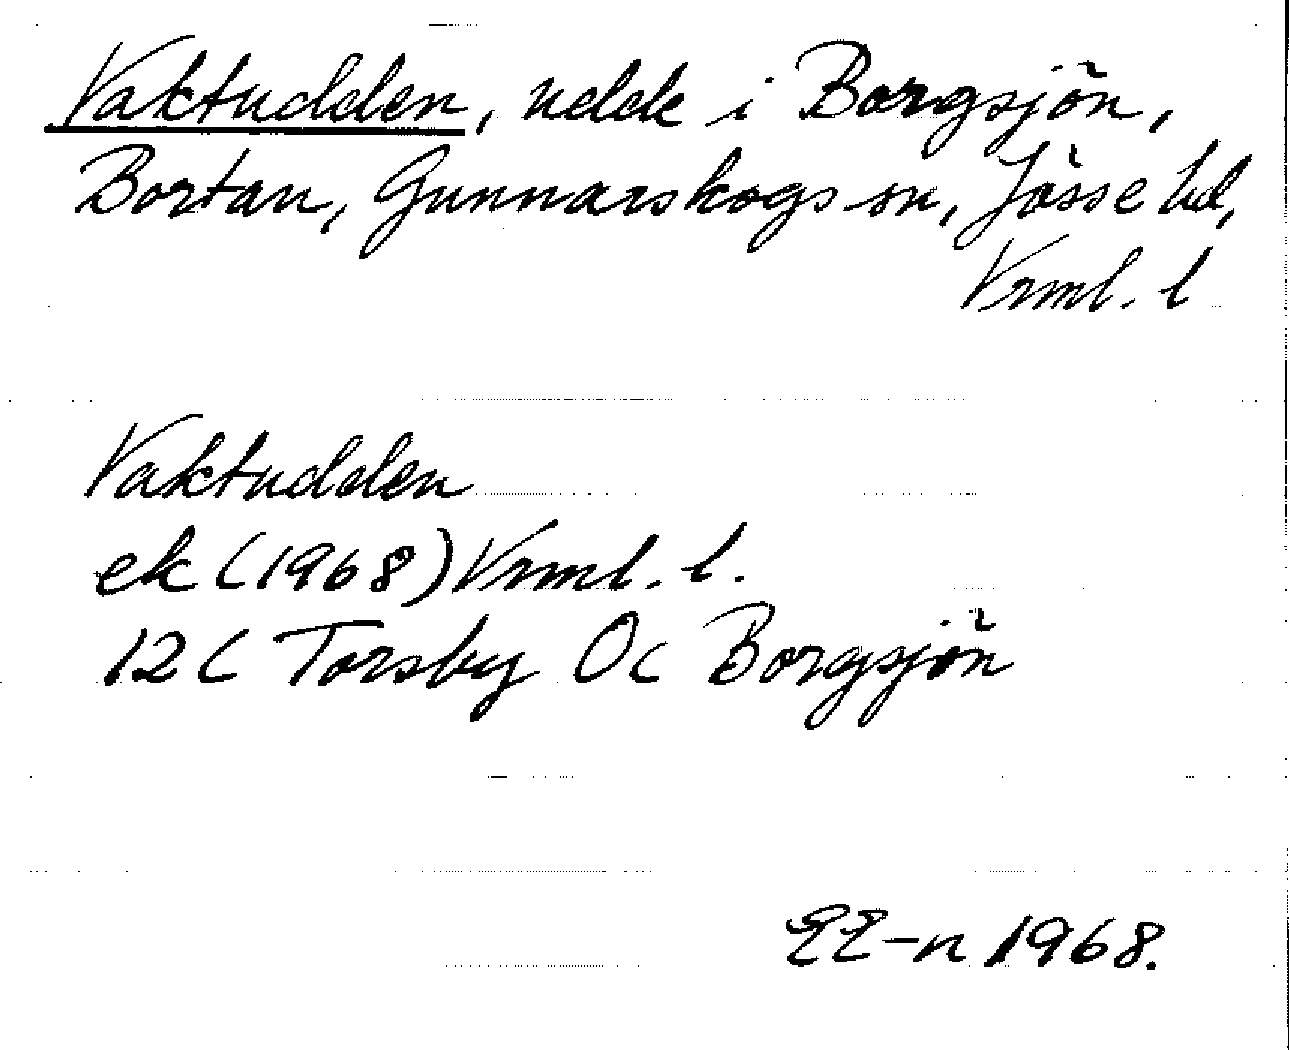 Vaktudden, udde i Borgsjön,
Bortan, Gunnarskogs sn, Jösse hd,
Vrml. l
Vaktudden
ek (1968) Vrml. l.
12C Torsby 0c Borgsjön
EE-n 1968.